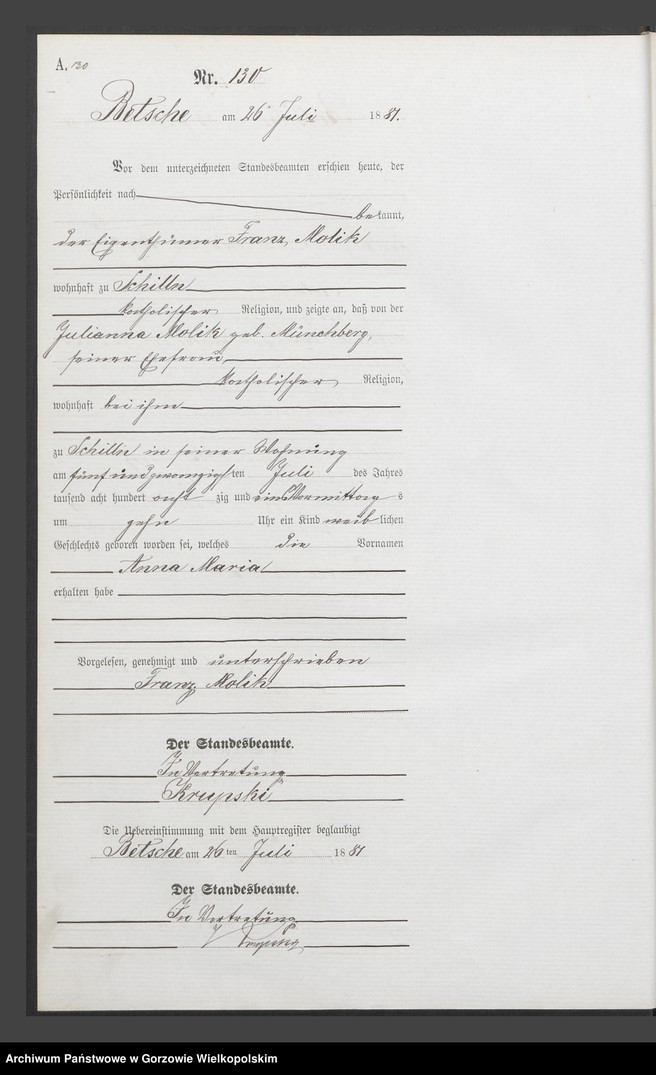 A. 130
Nr. 130
Betsche am 26 Juli 1881.
Vor dem unterzeichneten Standesbeamten erschien heute, der
Persönlichkeit nach
bekannt,
der Eigenthümer Franz Molik
wohnhaft zu Schilln
katholischer Religion, und zeigte an, daß von der
Julianna Molik geb. Münchberg,
seiner Ehefrau,
katholischer Religion,
wohnhaft bei ihm
zu Schilln in seiner Wohnung
am fünf und zwanzigsten Juli des Jahres
tausend acht hundert acht zig und eins Vormittag s
um zehn Uhr ein Kind weib lichen
Geschlechts geboren worden sei, welches die Vornamen
Anna Maria
erhalten habe
Vorgelesen, genehmigt und unterschrieben
Franz Molik
Der Standesbeamte.
In Vertretung
Krupski
Die Uebereinstimmung mit dem Hauptregister beglaubigt
Betsche am 26 ten Juli 1881
Der Standesbeamte.
In Vertretung
Archiwum Państwowe w Gorzowie Wielkopolskim